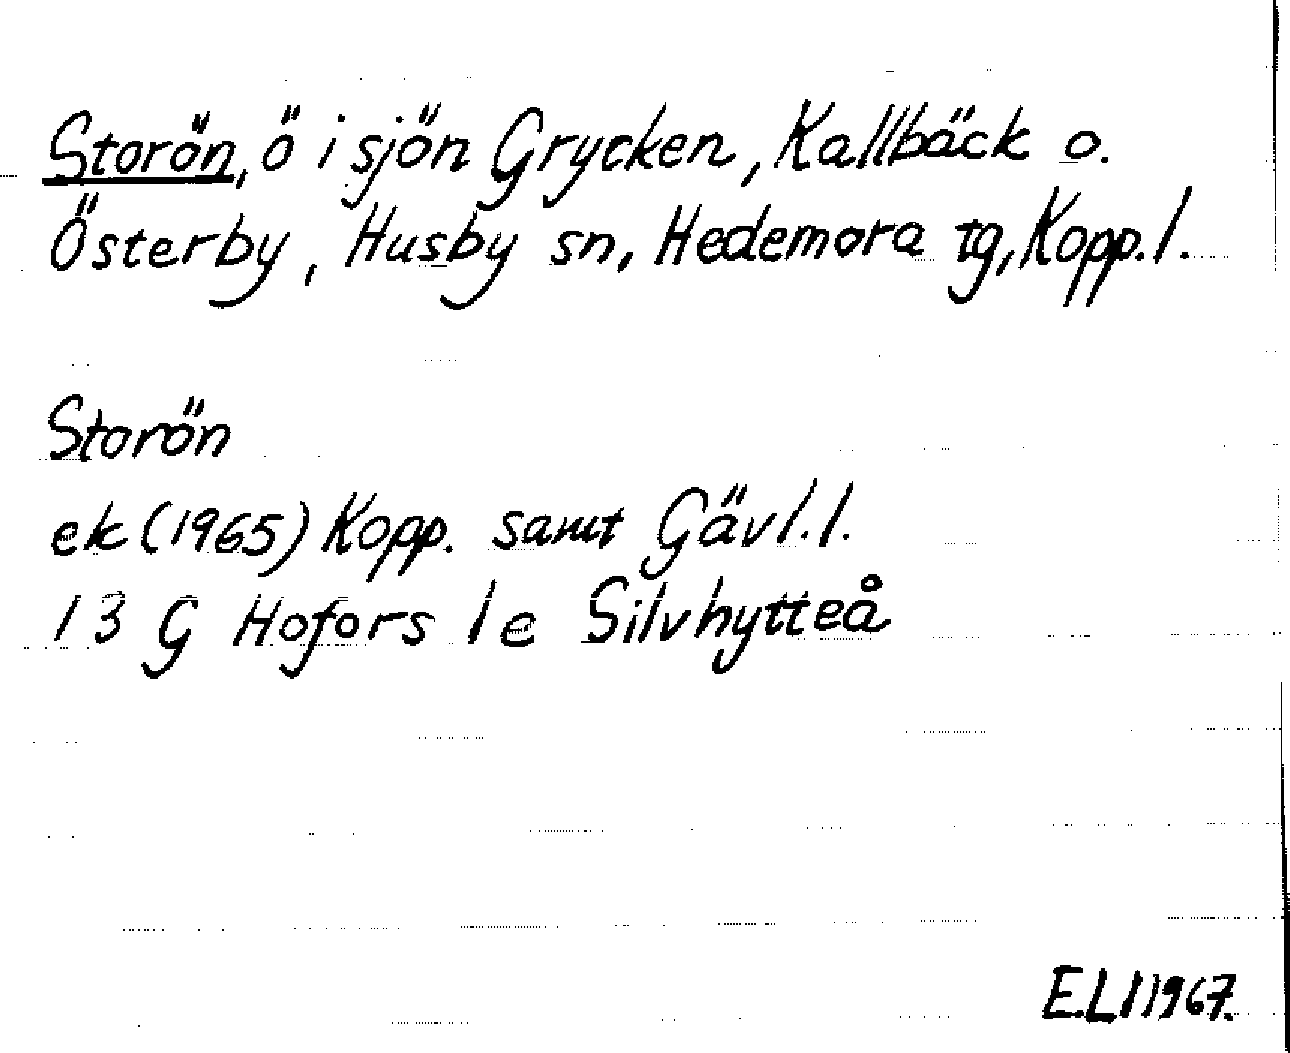 Storön, ö i sjön Grycken, Kallbäck o.
Österby, Husby sn, Hedemora tg, Kopp. l.
Storön
ek (1965) Kopp. samt Gävl. l.
13 G Hofors 1 e Silvhytteå
E.L 1967.